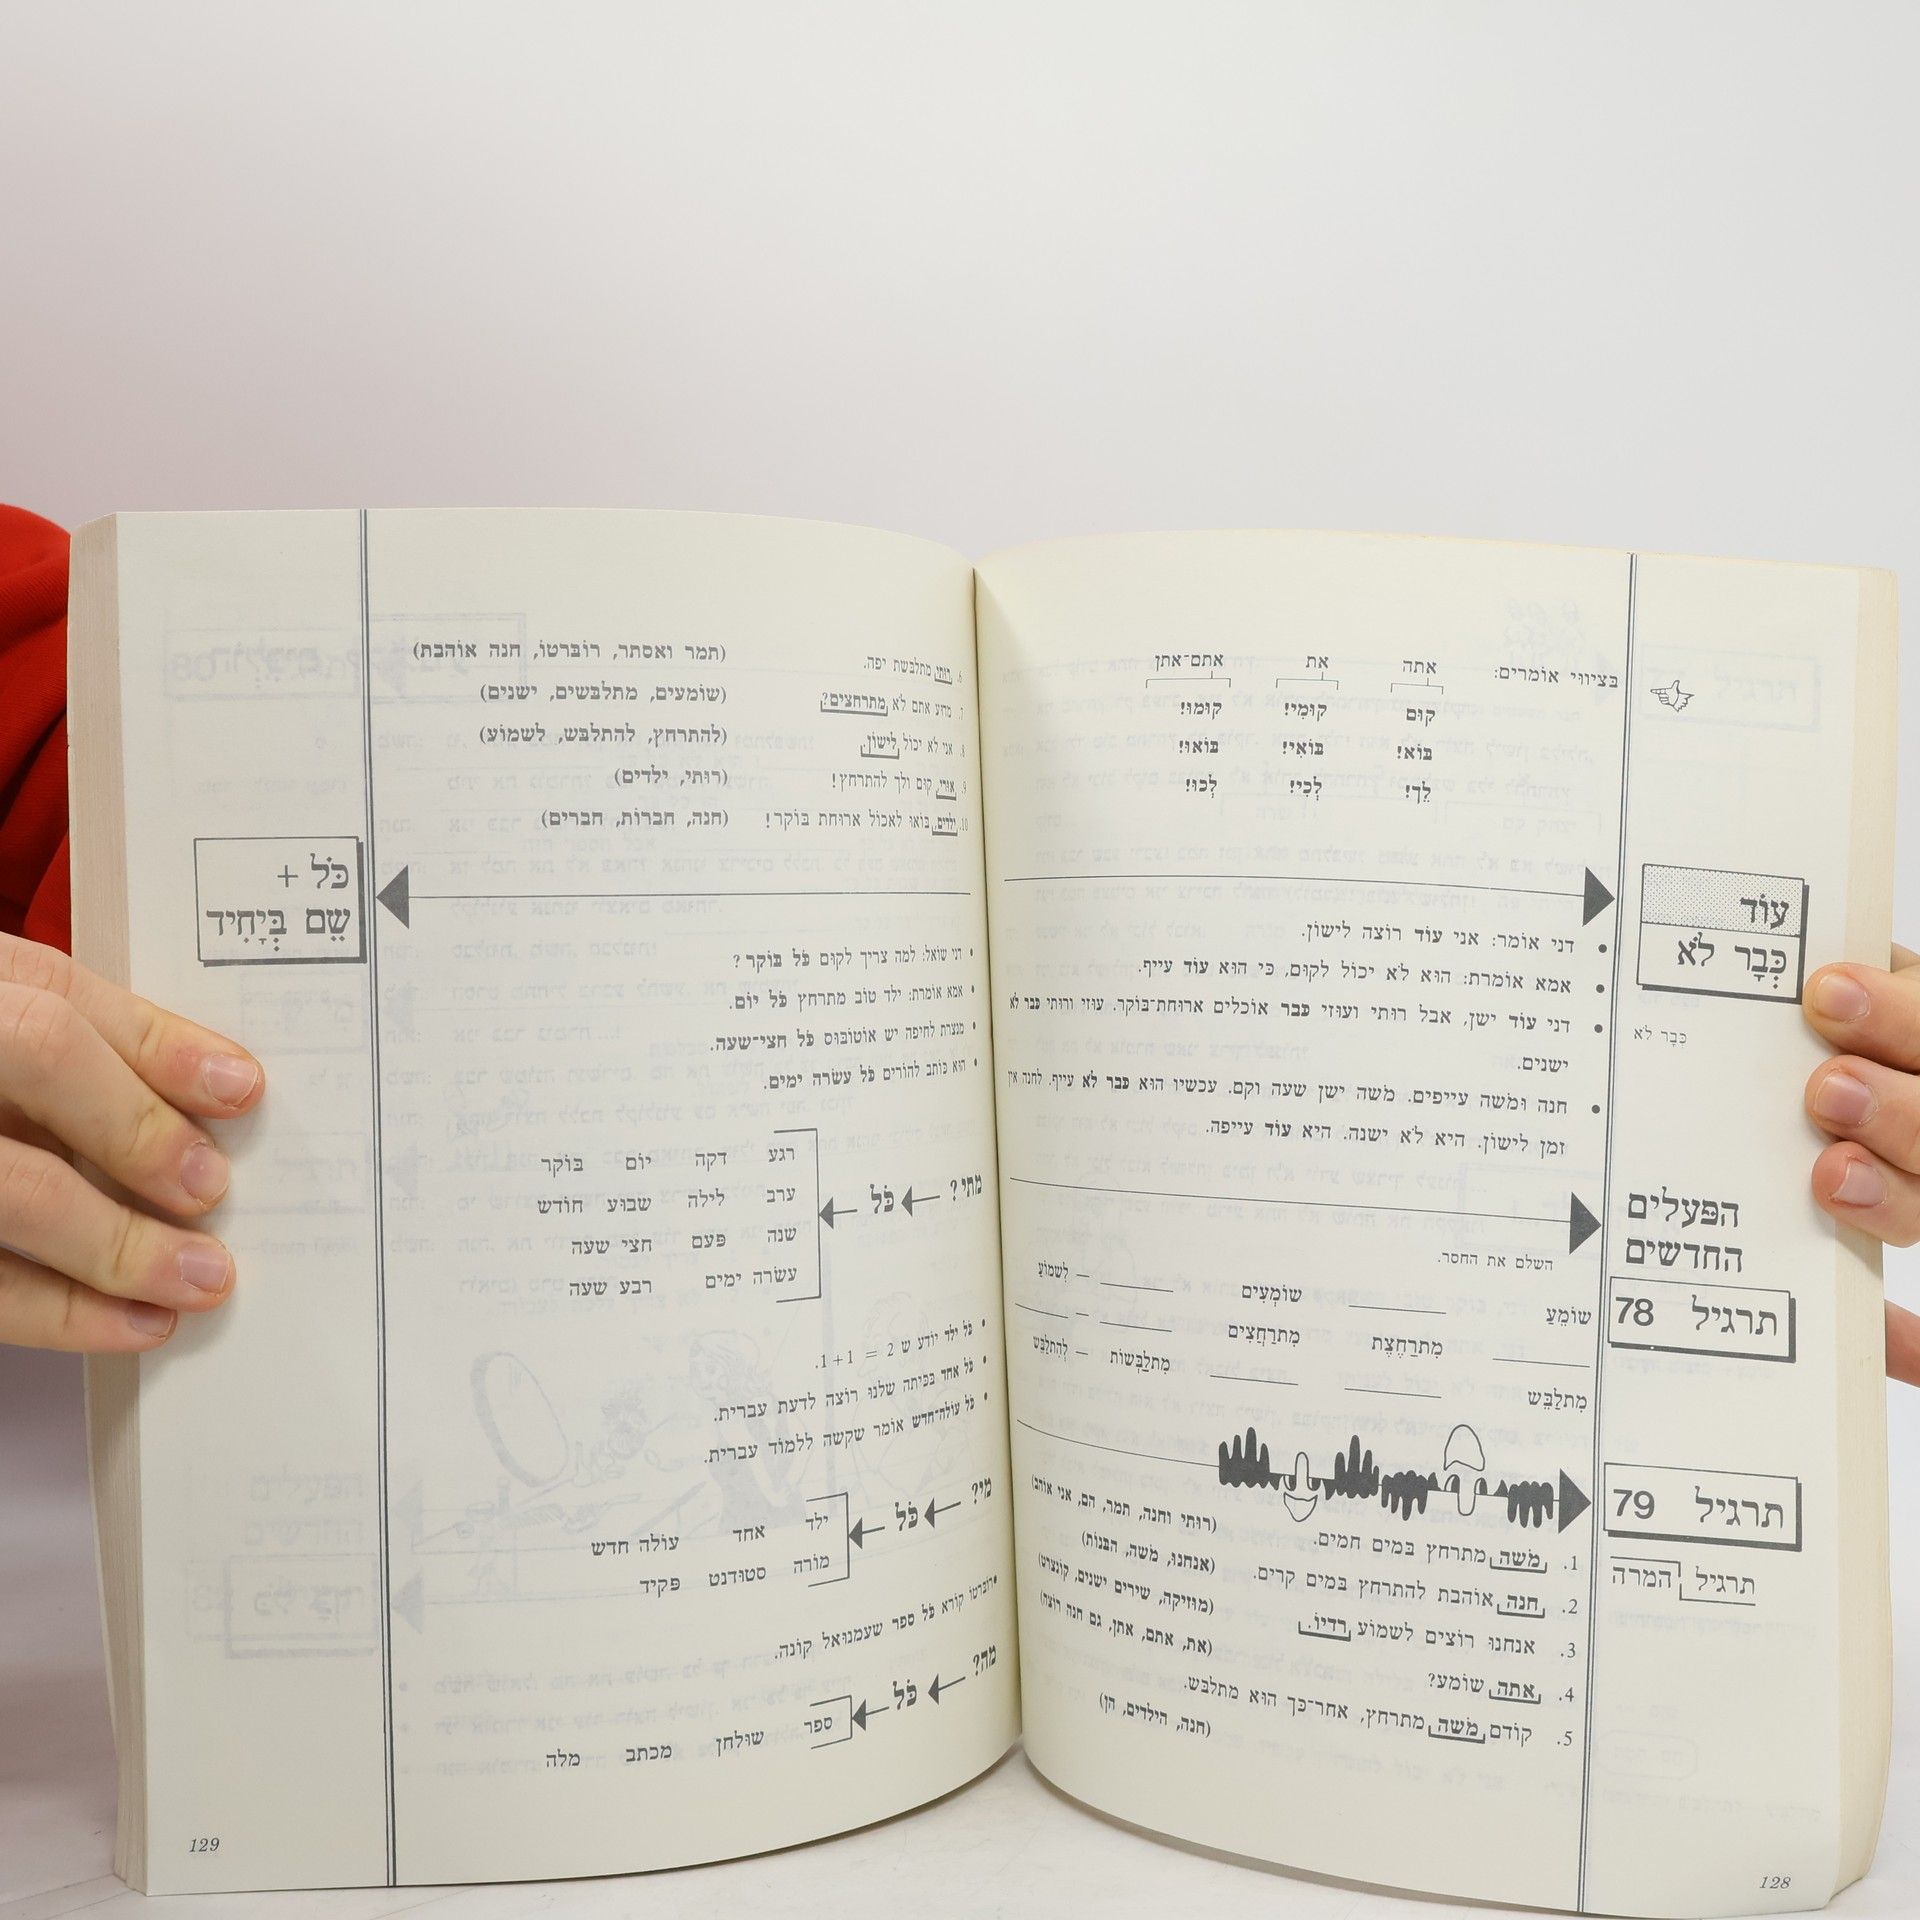 בציווי אומרים: אתה את אתם־אתן
קום קומי! קומו!
בוא! בואי! בואו!
לך! לכי! לכו!
עוֹד
כְּבָר לֹא
• דני אומר: אני עוד רוצה לישון.
• אמא אומרת: הוא לא יכול לקום, כי הוא עוד עייף.
• דני עוד ישן, אבל רותי ועוזי כבר אוכלים ארוחת־בוקר. עוזי ורותי כבר לא
ישנים.
כְּבָר לא
• חנה ומשה עייפים. משה ישן שעה וקם. עכשיו הוא כבר לא עייף. לחנה אין
זמן לישון. היא לא ישנה. היא עוד עייפה.
הפעלים
החדשים
תרגיל 78
השלם את החסר.
שׁוֹמֵעַ ______ שׁוֹמְעִים ______ — לִשְׁמוֹעַ
______ מִתְרַחֶצֶת מִתְרַחֲצִים ______ — ______
מִתְלַבֵּשׁ ______ ______ מִתְלַבְּשׁוֹת — לְהִתְלַבֵּשׁ
תרגיל 79
תרגיל המרה
1. משה מתרחץ במים חמים. (רותי וחנה, תמר, הם, אני אוהב)
2. חנה אוהבת להתרחץ במים קרים. (אנחנו, משה, הבנות)
3. אנחנו רוצים לשמוע רדיו. (מוזיקה, שירים ישנים, קונצרט)
4. אתה שומע? (את, אתם, אתן, גם חנה רוצה)
5. קודם משה מתרחץ, אחר־כך הוא מתלבש. (חנה, הילדים, הן)
128
6. רותי מתלבשת יפה. (תמר ואסתר, רוברטו, חנה אוהבת)
7. מדוע אתם לא מתרחצים? (שומעים, מתלבשים, ישנים)
8. אני לא יכול לישון. (להתרחץ, להתלבש, לשמוע)
9. אורי, קום ולך להתרחץ! (רותי, ילדים)
10. ילדים, בואו לאכול ארוחת בוקר! (חנה, חברות, חברים)
כֹּל +
שֵׁם בְּיָחִיד
• דני שואל: למה צריך לקום כל בוקר?
• אמא אומרת: ילד טוב מתרחץ כל יום.
• מנצרת לחיפה יש אוטובוס כל חצי־שעה.
• הוא כותב להורים כל עשרה ימים.
מתי? כֹּל רגע דקה יום בוקר
ערב לילה שבוע חודש
שנה פעם חצי שעה
עשרה ימים רבע שעה
• כל ילד יודע ש 2 = 1+1.
• כל אחד בכיתה שלנו רוצה לדעת עברית.
• כל עולה־חדש אומר שקשה ללמוד עברית.
מי? כֹּל ילד אחד עולה חדש
מורה סטודנט פקיד
•רוברטו קורא כל ספר שעמנואל קונה.
מה? כֹּל ספר שולחן מכתב מלה
129